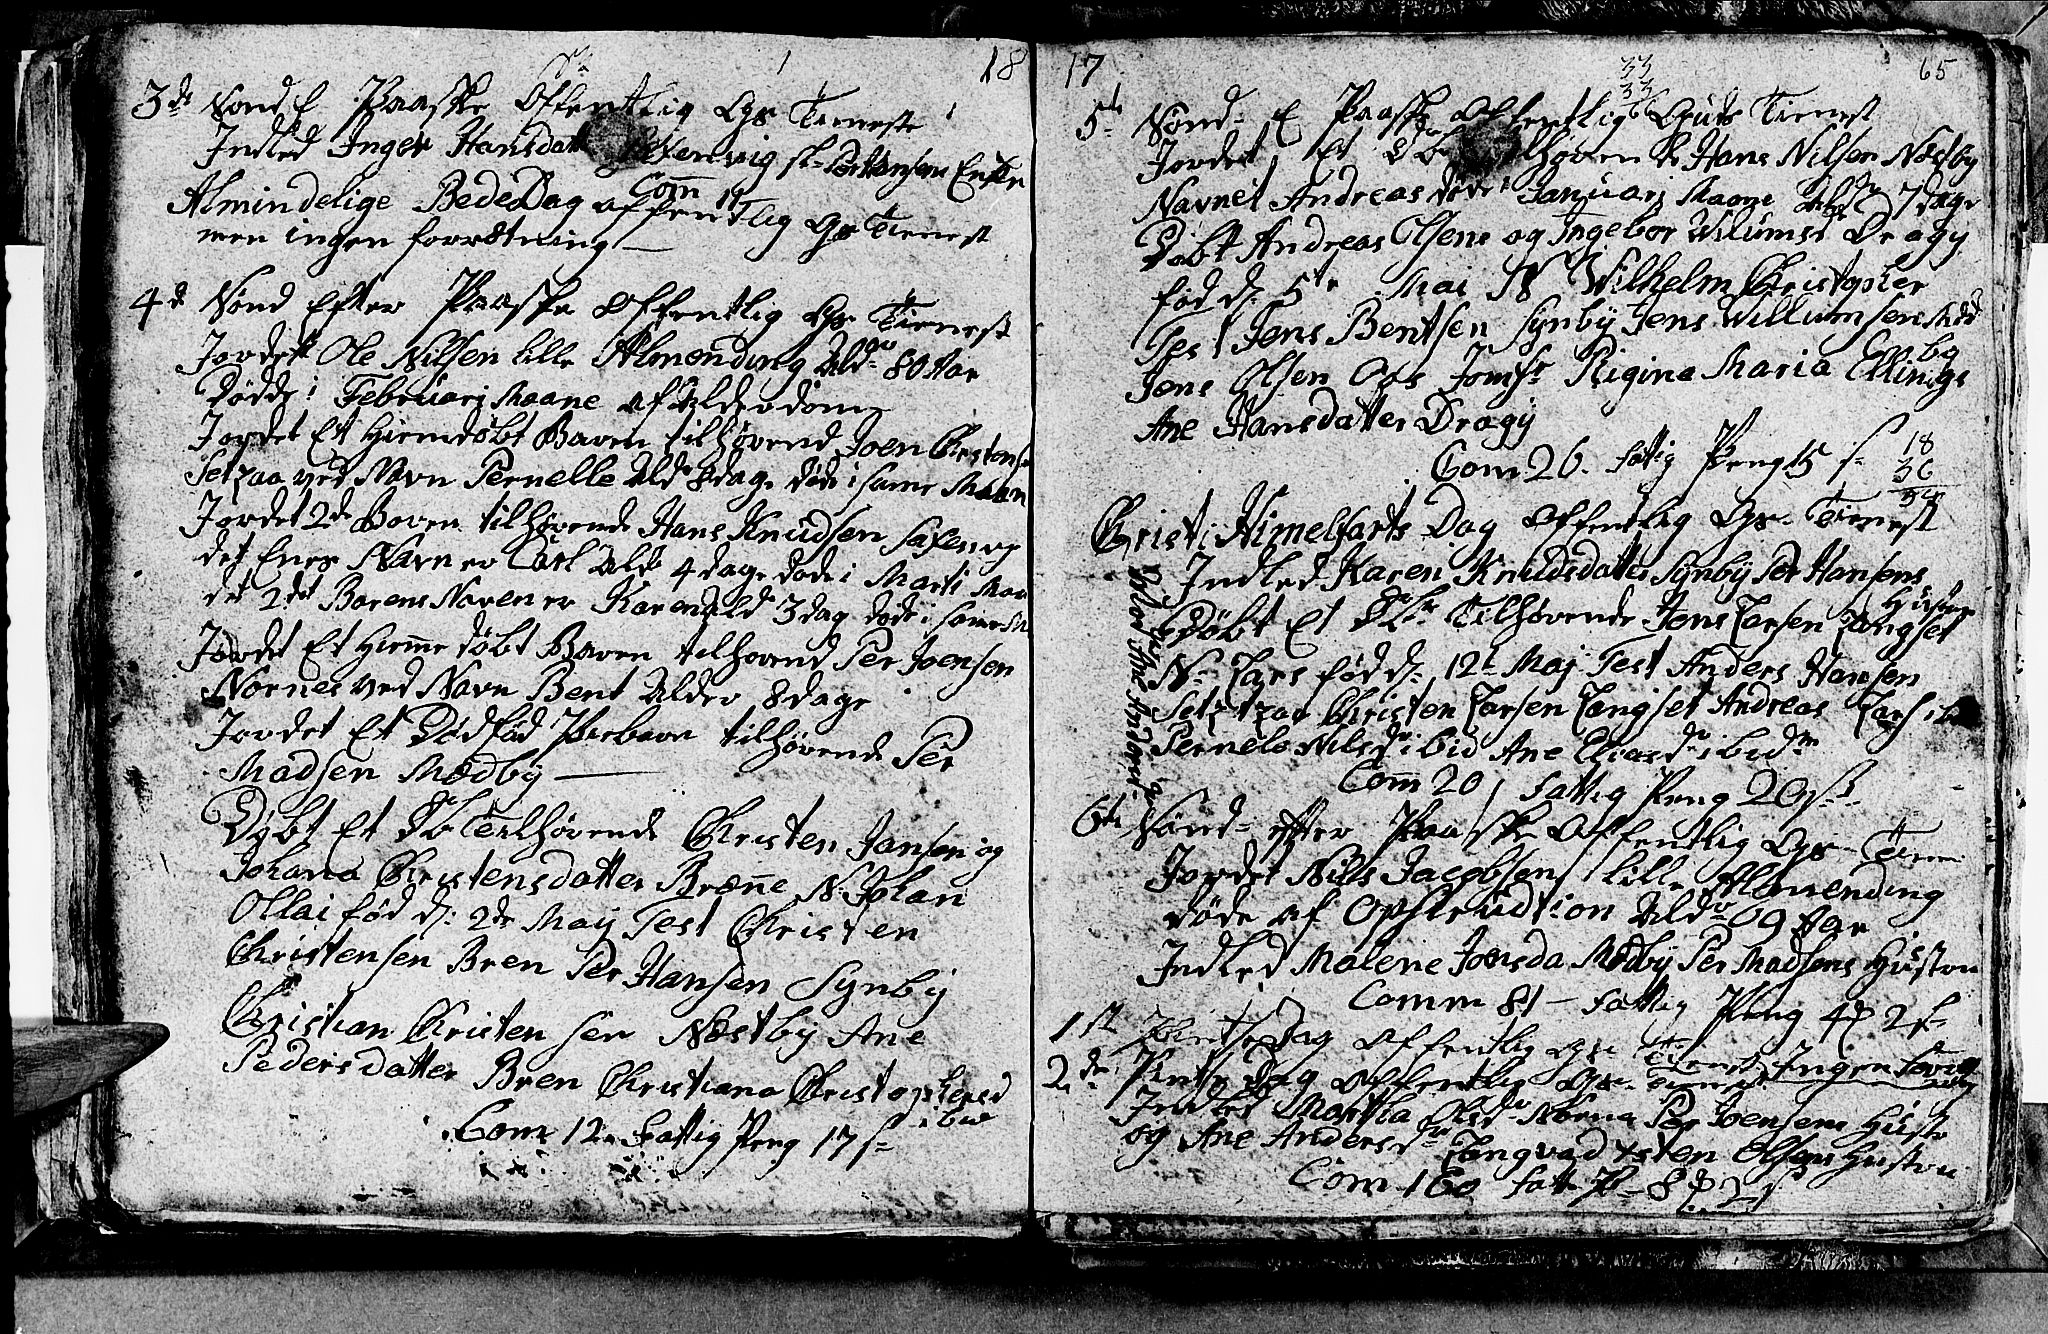 18
3de Sønd E Paaske Offentlig Gs Tieneste
Indled Inger Hansdat Per Hansens Enke
Com 14
Almindelige BedeDag offentlig Gs Tienest
men ingen forrætning
4de Sønd Efter Paaske offentlig Gs Tienest
Jordet Ole Nilsen lille Almending Ald 80 Aar
Døde i Februarj Maane af Alderdom
Jordet Et Hiemdøbt Baren tilhørend Joen Christens
Setzaa ved Navn Pernelle Ald 8 dage døde i same Maan
Jordet 2de Boren tilhørende Hans Knudsen
det Enes Navn er Carl Ald 4 dage døde i Marti Maa
det 2det Barens Naven er Karen Ald 3 dag døde i same
Jordet Et Hieme døbt Baren tilhørend Per Joensen
Nornes ved Navn Bent Alder 8 dage
Jordet Et Dødfød Pbebarn tilhørende Per
Madsen Medby
Døbt Et Db Tilhørende Christen Jansen og
Johana Christensdatter Brenne N. Johan
Ollai fød d. 2de Maij Test Christen
Christensen Bren Per Hansen Synbÿ
Christian Christensen Næstbÿ Ane
Pedersdatter Bren Christiana Christophersd
ibid
Com 12. Fattig Peng 17 s
17
33
33
65
5te Sønd E Paaske offentlig Guds Tienest
Jordet Et tilhøren Hans Nilsen Nestby
Navnet Andreas døde i Januarj Maane Ald 7 dage
Døbt Andreas Olsens og Ingebor Wilumsd Dragÿ
fød d. 5te Mai N Wilhelm Christopher
Test Jens Bentsen Synby Jens Willumsen Med
by
Jens Olsen Jomfr Rigina Maria Ellings
Ane Hansdatter Dragÿ
Com 26. fattig Peng 15 s
18
36
54
Christi Himelfarts Dag offentlig Gs Tienest
Indled Karen Knudsdatter Synbÿ Per Hansens
Hustru
Døbt Et Tilhørende Jens Larsen Langset
N. Lars fød d. 12t Maj Test Anders Hansen
Christen Larsen Langset Andreas Lars ibd
Pernele Nilsd ibid Ane Eliasd ibid
Com 20 fattig Peng 20 s
6te Sønd efter Paaske offentlig Gs Tiene
Jordet Nils Jacobsen lille Almending
døde af Opstrudtion Ald 69 Aar
Indled Malene Jonsda Medbÿ Per Madsens Hustru
Comm 81 fattig Peng 2 s
1st Pintse Dag offentlig Gs Tienest Ingen
2de Pintse Dag offentlig Gs Tienest
Indled Martha Olsd Norna Per Joensens Hustr
og Ane Andersd Lengvad Xsten Olsens Hustru
Com 160 fatt P 8